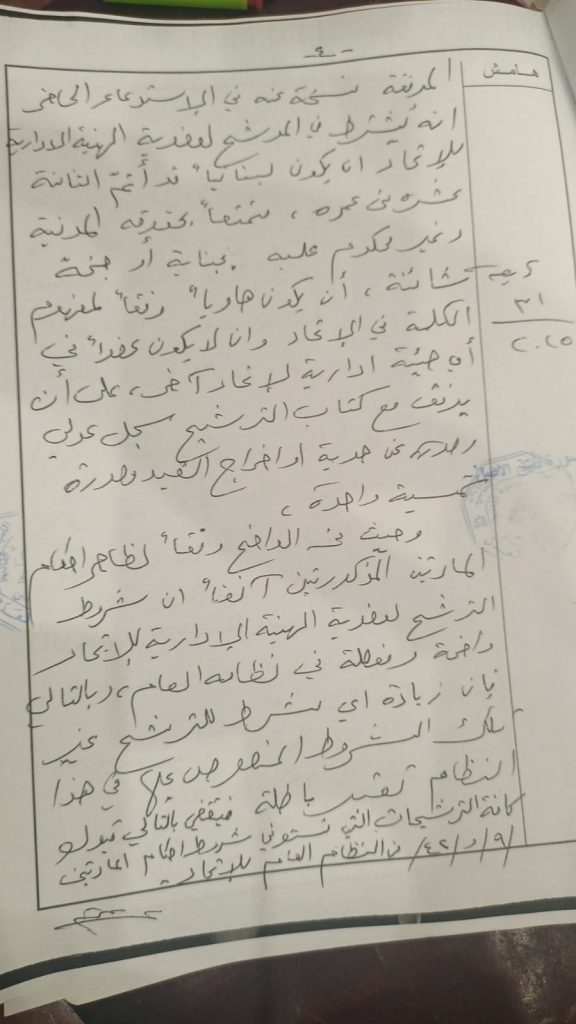 - ٤ -
هامش
المرفقة نسخة عنه في الإستدعاء الحاضر
انه يُشترط في المرشح لعضوية الهيئة الادارية
للإتحاد ان يكون لبنانياً قد أتمّ الثامنة
عشرة من عمره، متمتعاً بحقوقه المدنية
وغير محكوم عليه بجناية أو جنحة
شائنة، أن يكون هاوياً وفقاً لمفهوم
الكلمة في الإتحاد وان لا يكون عضواً في
أي هيئة ادارية لإتحاد آخر، على أن
يرفق مع كتاب الترشيح سجل عدلي
وصورة عن هوية او اخراج القيد وصورة
شمسية واحدة،
٣١
٢٠٢٥
وحيث من الواضح وفقاً لظاهر احكام
المادتين المذكورتين آنفاً ان شروط
الترشح لعضوية الهيئة الإدارية للإتحاد
واضحة ومفصلة في نظامه العام، وبالتالي
فإن زيادة اي شرط للترشح غير
تلك الشروط المنصوص عليها في هذا
النظام تعتبر باطلة فيقتضي بالتالي قبول
كافة الترشيحات التي تستوفي شروط احكام المادتين
/٩/ و /٤٢/ من النظام العام للإتحاد.